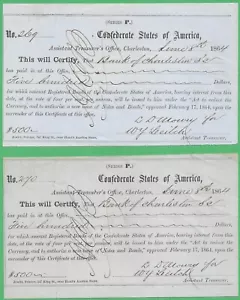 (SERIES P.)
No. 269
Confederate States of America,
Assistant Treasurer's Office, Charleston, June 8th 1864
This will Certify, That Bank of Charleston So Ca
has paid in at this office Five hundred
Dollars,
for which amount Registered Bonds of the Confederate States of America, bearing interest from this
date, at the rate of four per cent. per annum, will be issued to him under the "Act to reduce the
Currency, and to authorize a new issue of Notes and Bonds," approved February 17, 1864, upon the
surrender of this Certificate at this office.
$500
for
Assistant Treasurer.
(SERIES P.)
No. 270
Confederate States of America,
Assistant Treasurer's Office, Charleston, June 8th 1864
This will Certify, That Bank of Charleston So Ca
has paid in at this office Five hundred
Dollars,
for which amount Registered Bonds of the Confederate States of America, bearing interest from this
date, at the rate of four per cent. per annum, will be issued to him under the "Act to reduce the
Currency, and to authorize a new issue of Notes and Bonds," approved February 17, 1864, upon the
surrender of this Certificate at this office.
$500
for
Assistant Treasurer.